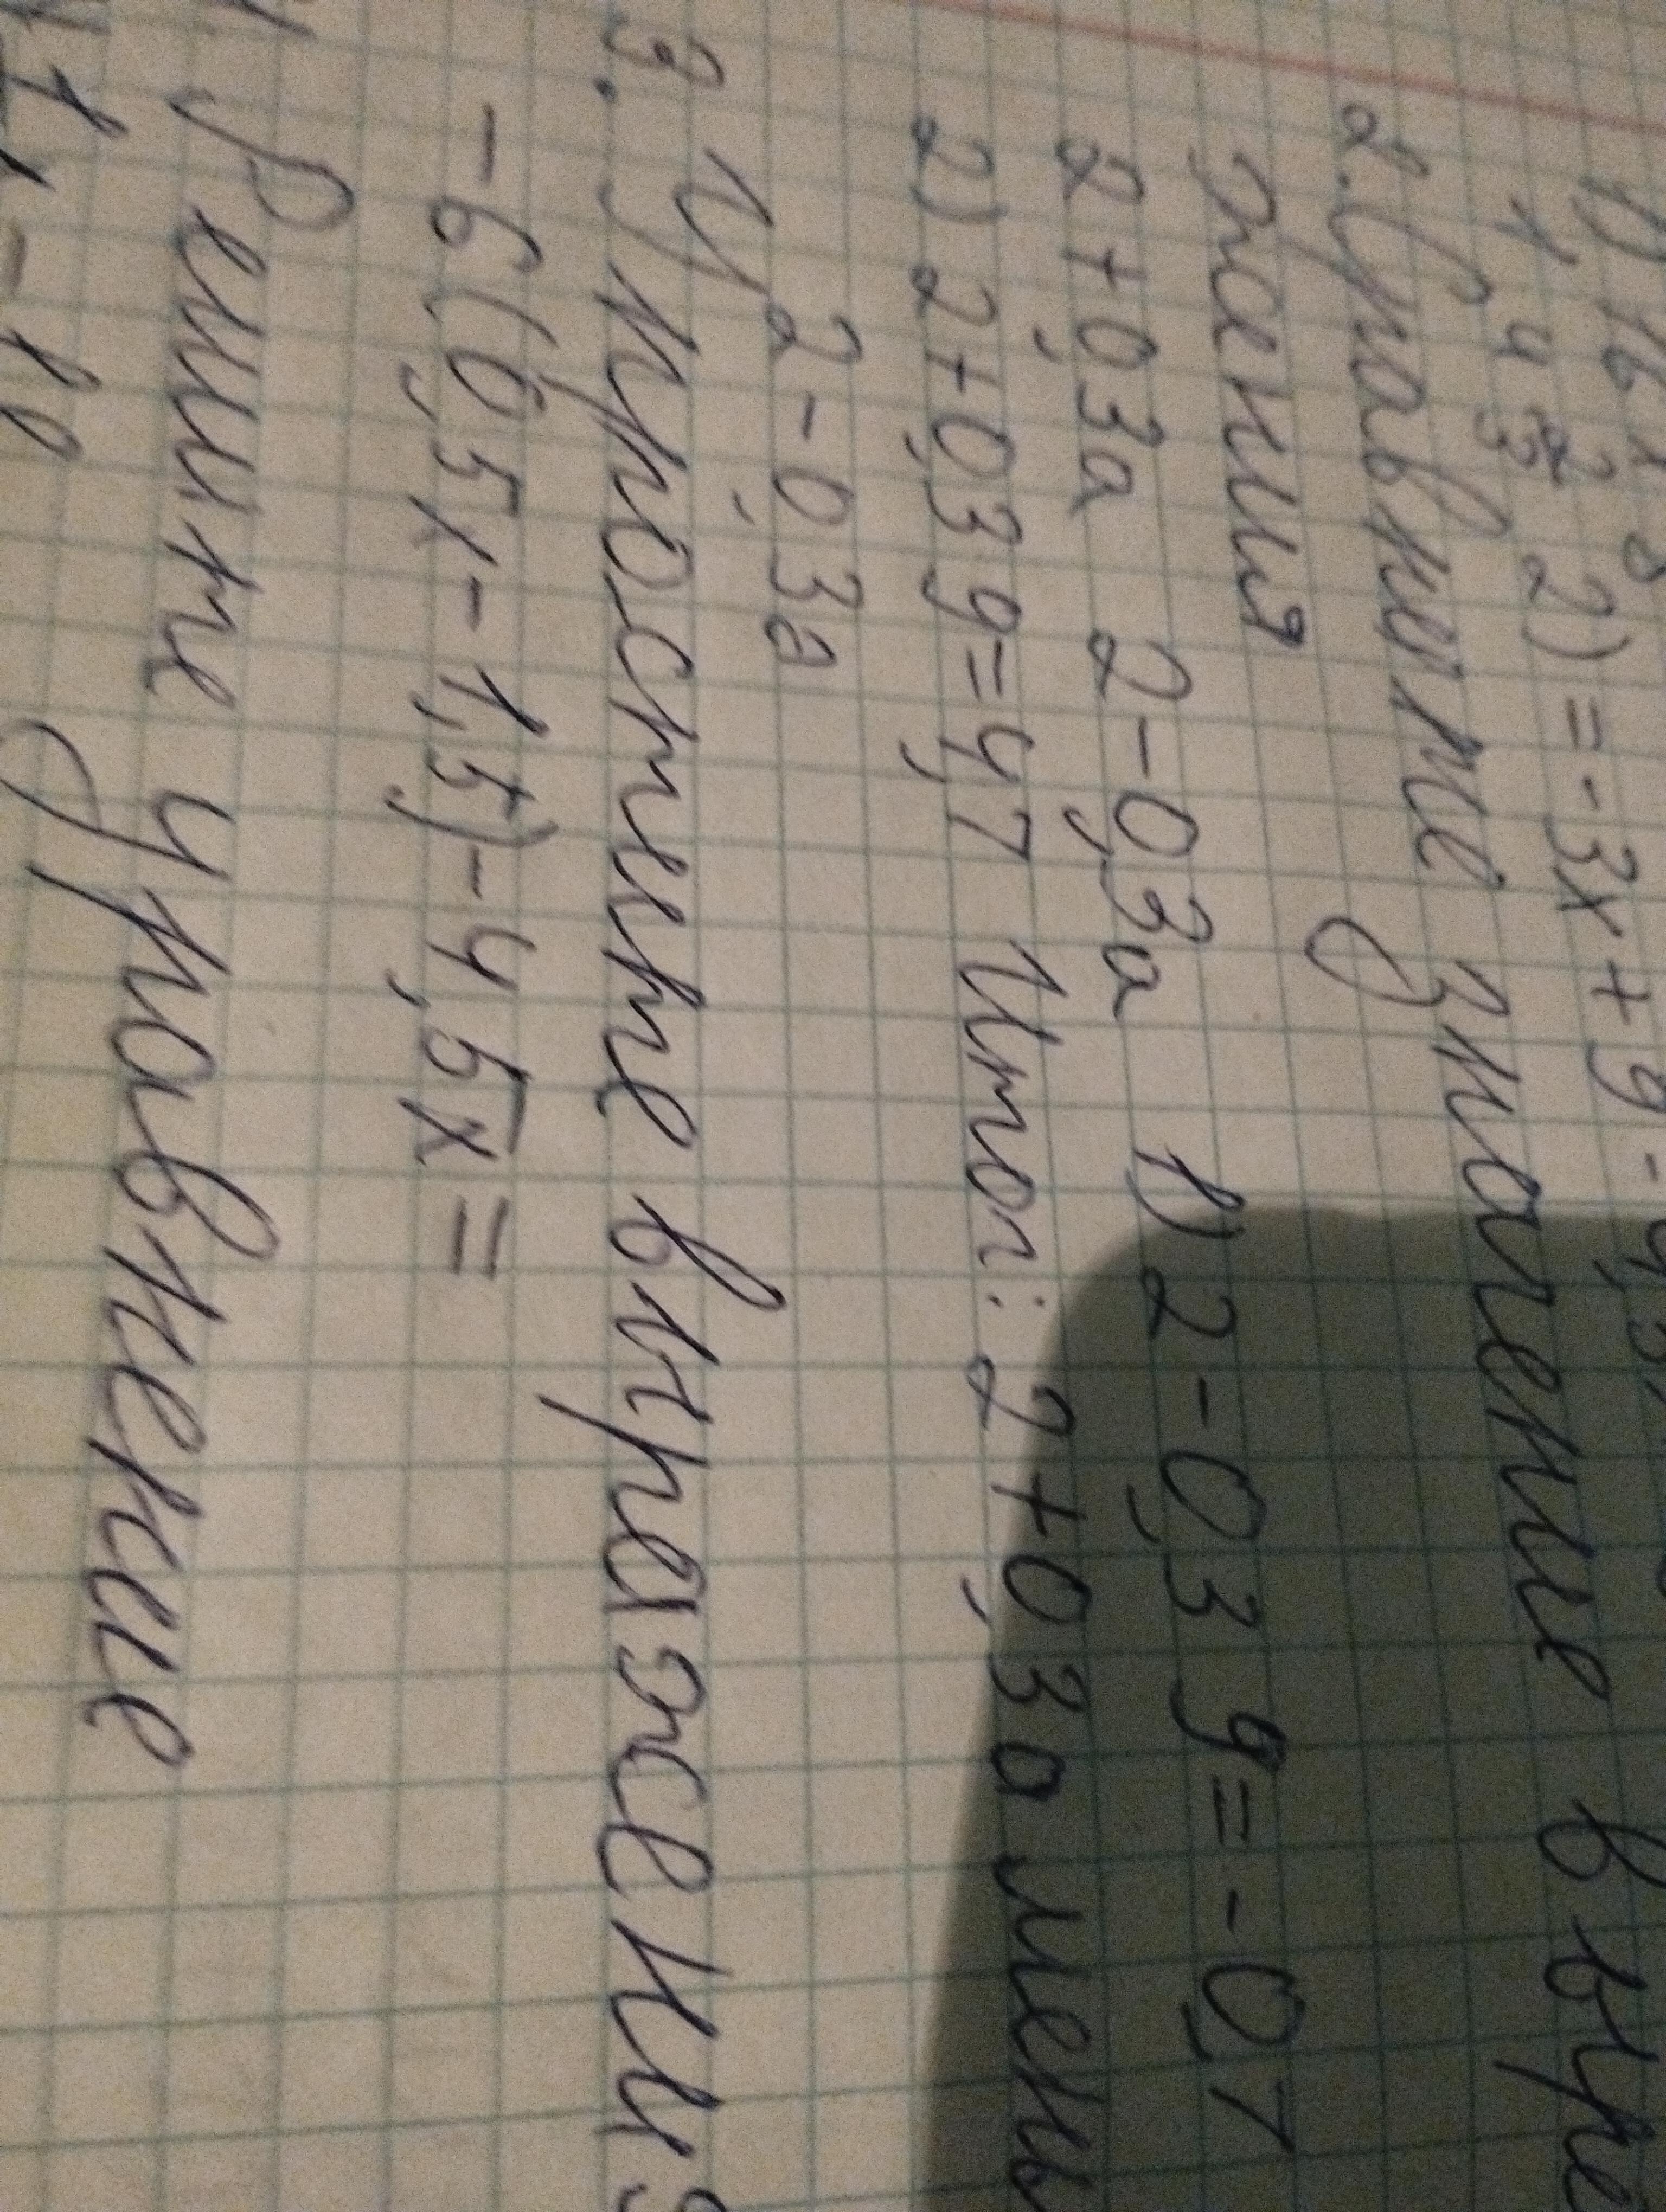 2) = -3x + 9 - 4,5
2. Сравните значение в выра
жения
2+0,3а 2-0,3а 1) 2-0,3 9=-0,7
2) 2+0,3 9=4,7 Итог: 2+0,3а мень
2-0,3а
3. Упростите выражения
-6(0,5x-1,5)-4,5x=
Решите уравнение